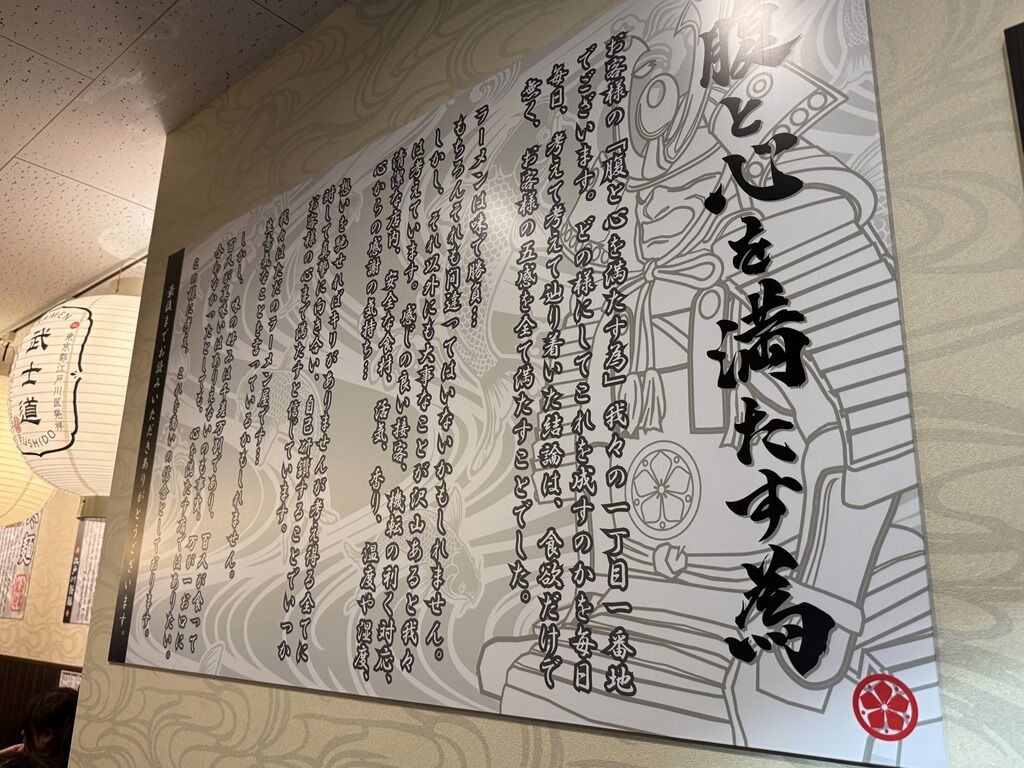 腹と心を満たす為
お客様の「腹と心を満たす為」我々の一丁目一番地
でございます。どの様にしてこれを成すのかを毎日
毎日、考えて考えて辿り着いた結論は、食欲だけで
無く、お客様の五感を全て満たすことでした。
ラーメンは味で勝負…
もちろんそれも間違ってはいないかもしれません。
しかし、それ以外にも大事なことが沢山あると我々
は考えています。感じの良い接客、機転の利く対応、
清潔な店内、安全な食材、活気、香り、温度や湿度、
心からの感謝の気持ち…
想いを馳せればキリがありませんが、考え得る全てに
対して真摯に向き合い、自己研鑽することでいつか
お客様の心まで満たすと信じています。
我々はただのラーメン屋です…
しかし、味の好みは千差万別であり、
百人が食べて
この様に
最後までお読みいただきありがとうございます。
武士道
東京都江戸川区
BUSHIDO